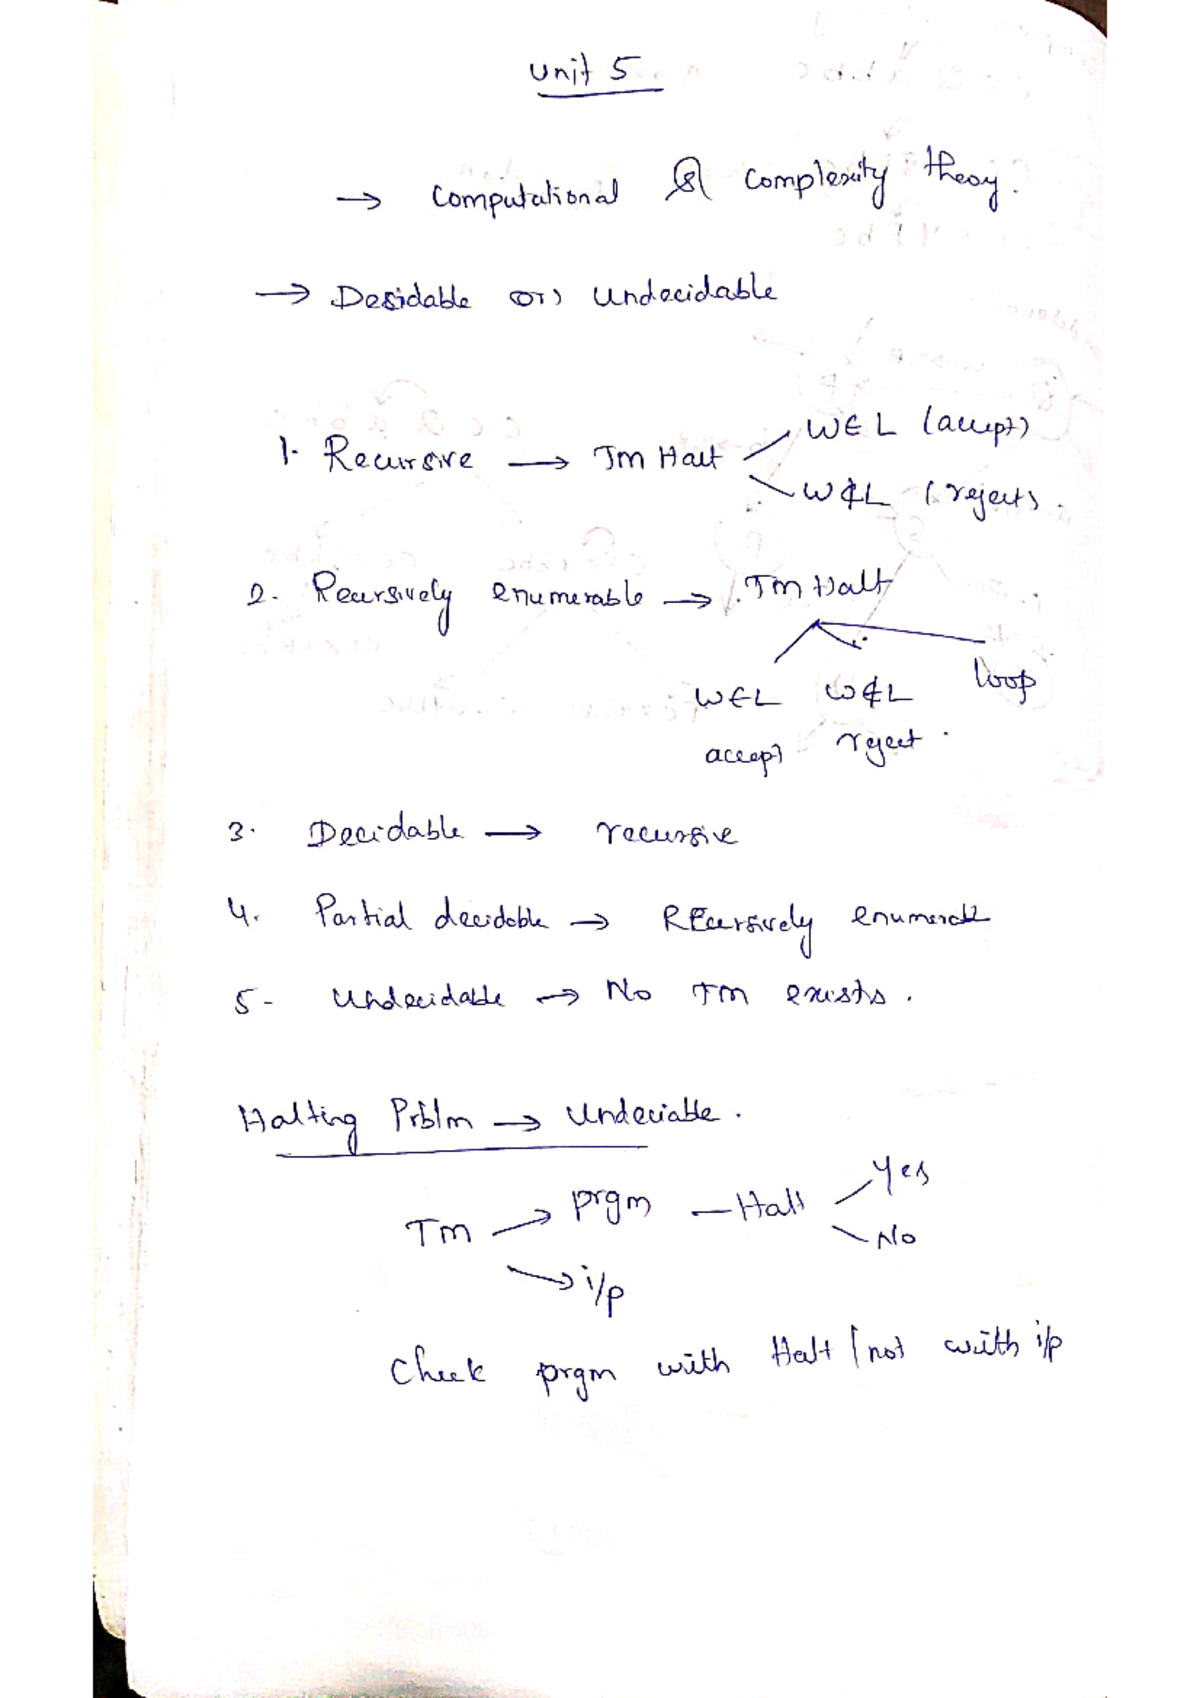 Unit 5
→ Computational & Complexity theory.
→ Desidable (or) Undecidable
1. Recursive → TM Halt W∈L (accept)
W∉L (reject).
2. Recursively enumerable → TM Halt
W∈L W∉L loop
accept reject.
3. Decidable → recursive
4. Partial decidable → REcursively enumerable
5- Undecidable → No TM exists.
Halting Prblm → Undeciable.
TM → prgm — Halt Yes
No
→ i/p
Check prgm with Halt/not with i/p